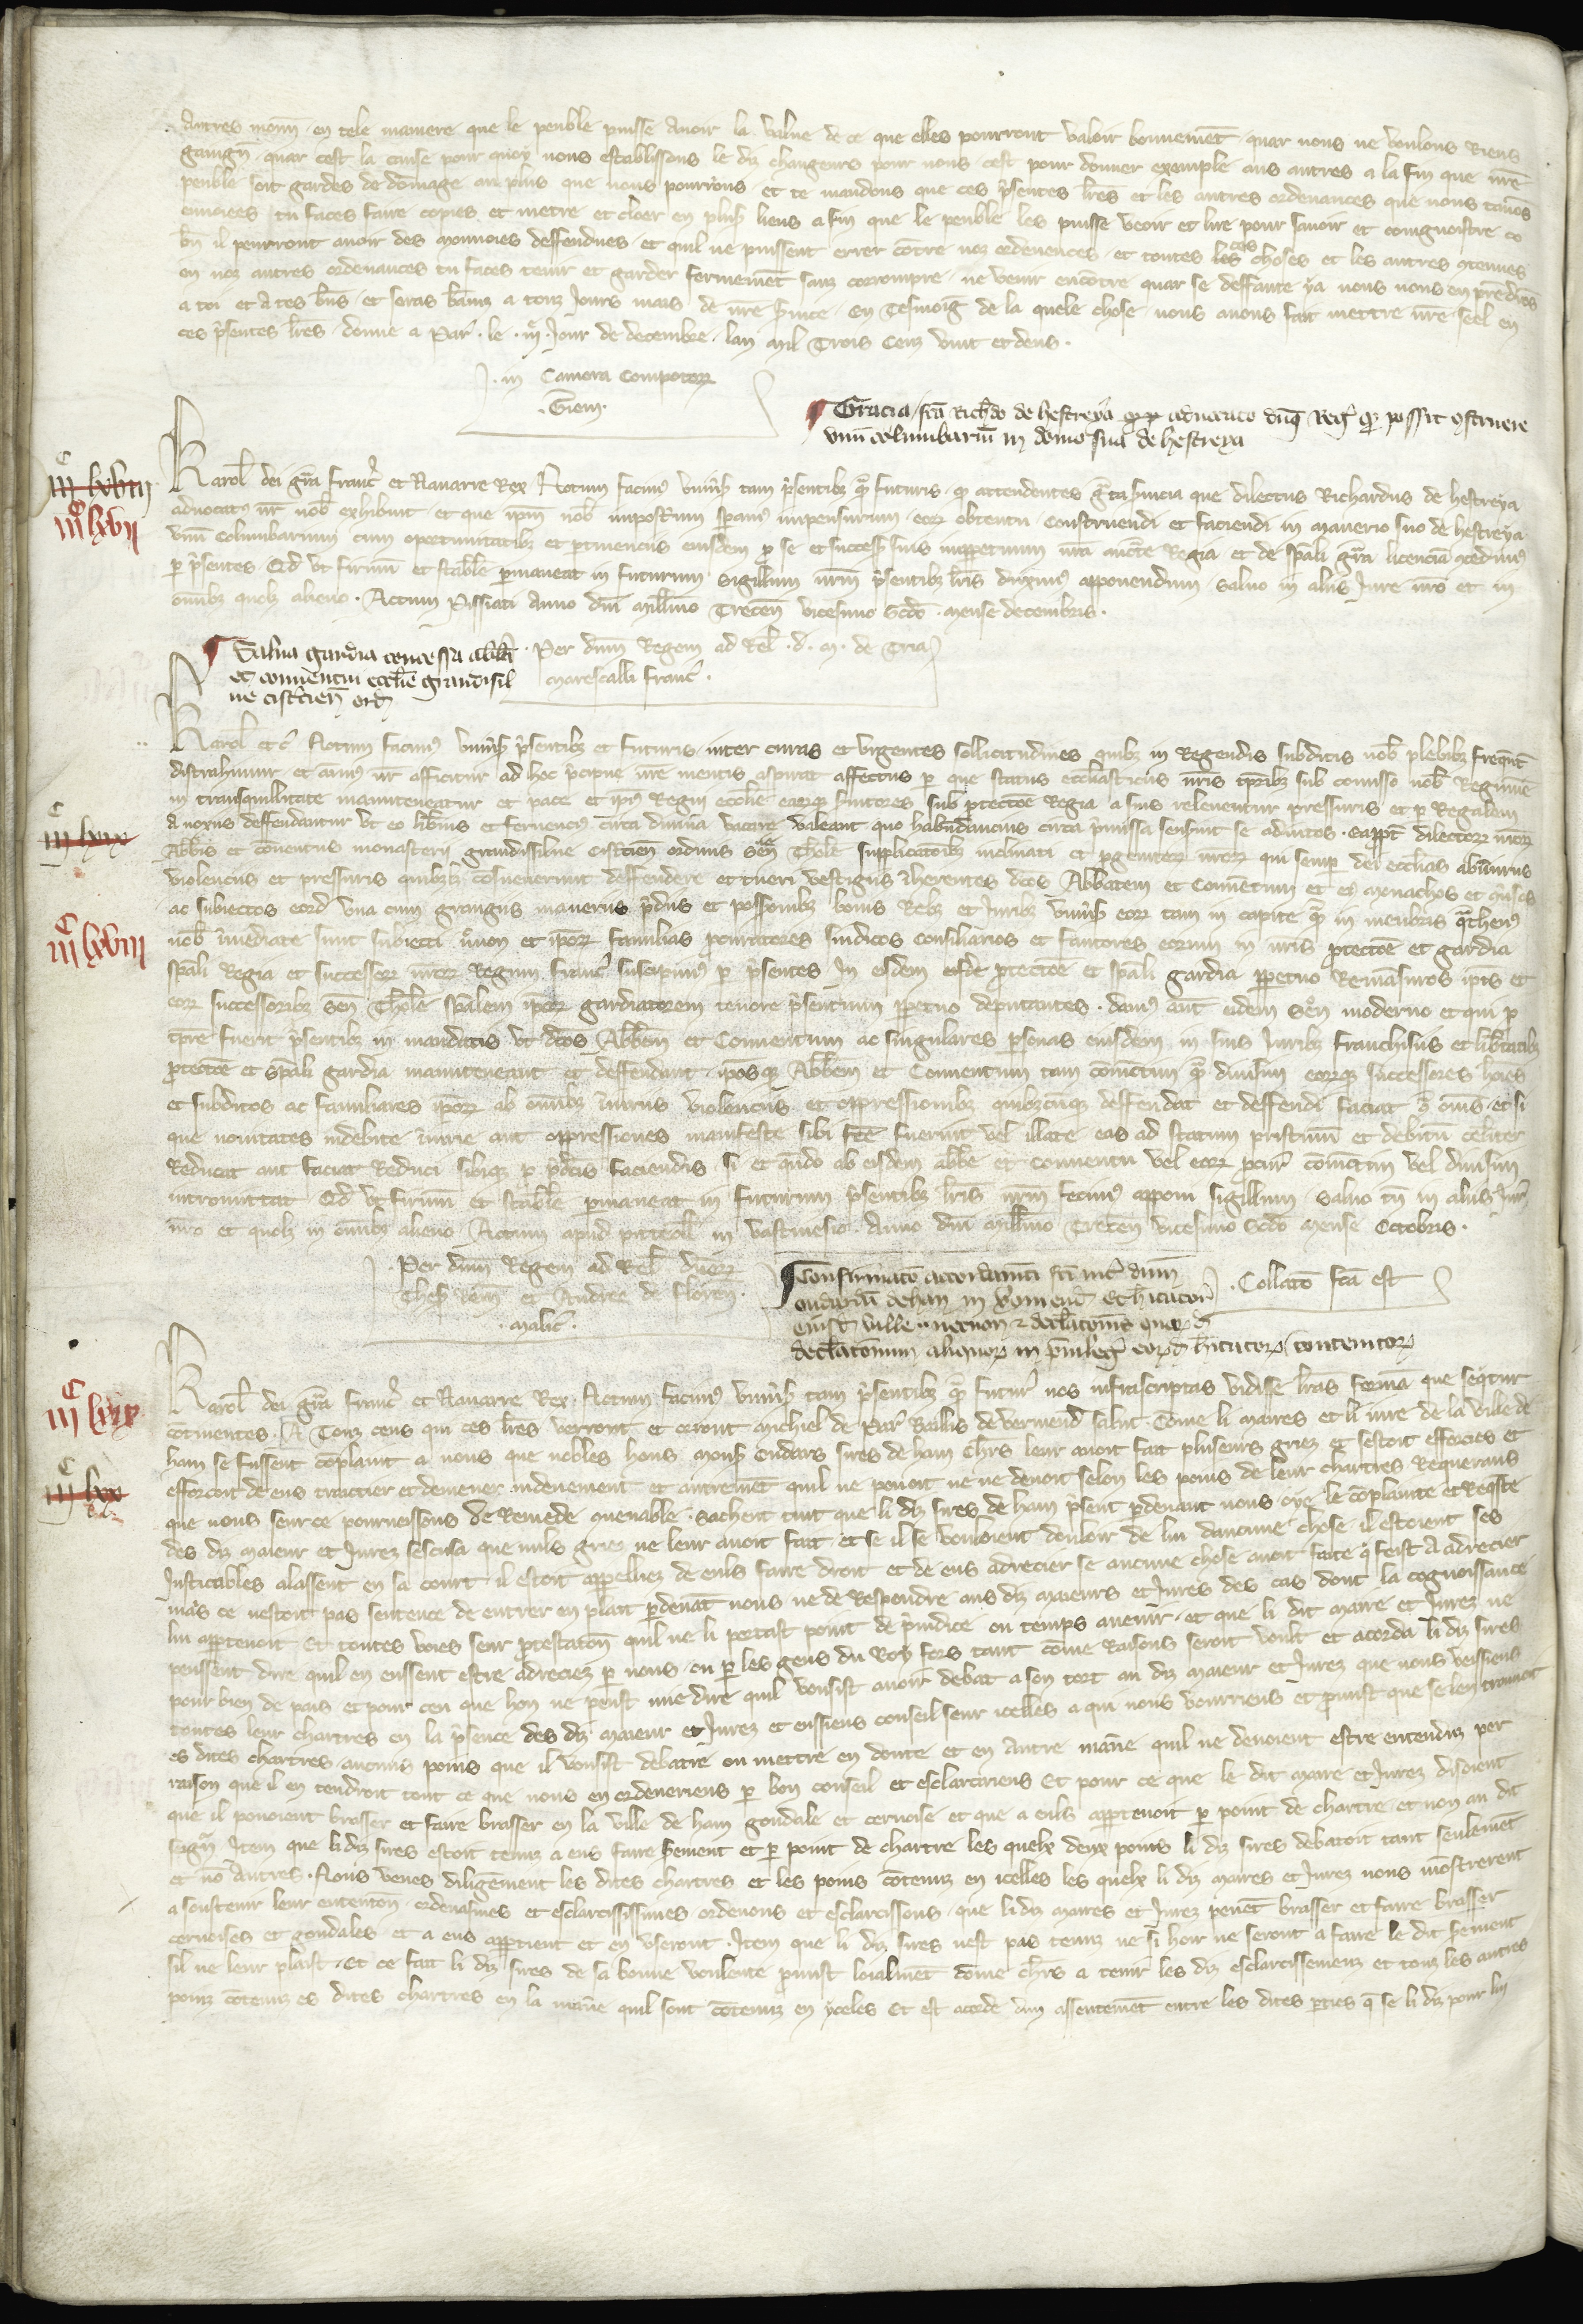 autres monn̄ · en tele maniere que le peuble puisse auoir la value de ce que elles pourront valoir bonnemēt · quar nous ne voulons Riens
gaaign̄ · quar cest la cause pour quoy nous establissons le dit changeurs pour nous cest pour donner exemple aus autres a la fin que nr̄e
peuble soit gardes de domage au plus que nous pourrons et te mandons que ces p̄sentes lr̄es et les autres ordenances que nous tauōs
enuoiees tu faces faire copies et metre et cloer en plus̄ lieus a fin que le peuble les puisse veoir et lire pour sauoir et congnoistre co
bn̄ il pourront auoir des monnoies deffendues · et quil ne puissent errer cōtre noz ordenences · et toutes ces choses et les autres ꝯtenues
en noz autres ordenances tu faces tenir et garder fermemēt sanz corrompre · ne venir encōtre quar se deffaute y a nous nous en prēdrōs
a toi et a tes biēs · et seras banniz a touz jours mais de nr̄e seruice · En Tesmoig de la quele chose nous auons fait mettre nr̄e seel en
ces p̄sentes lr̄es · donne a Par̄ · le · iij · Jour de decembre · lan mil Trois Cenz vint et deus ·
· in Camera Compotoꝝ
· Giem ·
Gracia fc̄a Rich̄do de hestreya aduocato dn̄i Reḡ qd̓ possit ꝯstruere
vnū columbariū in domo sua de hestreya
iijᶜ lxviii
iijᶜ lxvij
Karol̄ dei gr̄a franc̄ et Nauarre Rex Notum facim⁹ vniu̓sis tam p̄sentibꝫ qᵃ̄ futuris · qd̓ attendentes gᵃta seruicia que dilectus Richardus de hestreya
aduocat⁹ nr̄ nob̄ exhibuit · et que ip̄m nob̄ impost̓um speram⁹ impensurum · eoꝝ obtentu · construendi et faciendi in manerio suo de hestreya
vnū Columbarium cum oportunitatibꝫ et ptinenciis eiusdem p se et successoribꝫ suis imppetuum nr̄a aucte Regia et de sp̄ali gr̄a licenciā ꝯcedim⁹
p p̄sentes · Qd̓ vt firmū et stab̄le pmaneat in futurum sigillum nr̄m p̄sentibꝫ lr̄is duxim⁹ apponendum · saluo in aliis Jure nr̄o et in
om̄ibꝫ quolꝫ alieno · Actum Pissiaci Anno dn̄i mill̄mo Trecen̄ vicesimo Sc̄do · mense decembris ·
Per dn̄m Regem ad Rel̄ · d̄ · m · de Tria
marescalli franc̄ ·
Salua gardia concessa abb̄i
et conuentui eccl̄ie grandisil
ue cistercien̄ ord̄
iijᶜ lxix
iijᶜ lxviii
Karol̄ et c̄ Notum facim⁹ vniu̓sis p̄sentibꝫ et futuris · inter curas et vrgentes sollicitudines quibꝫ in Regendis subditis nob̄ plebibꝫ freqūt̄
distrahimur · et anim⁹ nr̄ afficitur ad hec p̄cipue nr̄e mentis aspirat affectus p que status eccl̄iasticus nr̄is tp̄ribꝫ sub comisso nob̄ Regimine
in tranquillitate manuteneatur et pace et ip̄ius Regni eccl̄ie earūqꝫ s̄uitores sub ptectōe Regia a suis releuentur pressuris et p Regalem
a noxiis deffendantur vt eo lib̄ius et feruenci⁹ circa diuina vacare valeant quo habūdancius circa p̄missa sensint se adiutos · eapp̄t dilectoꝝ nr̄oꝝ
Abb̄is et cōuentus monasterii grandissilue cistercien̄ ordinis sen̄ Thol̄e supplicatōibꝫ inclinati et pgenitoꝝ nr̄oꝝ qui semp dei eccl̄ias ab iniuriis
violenciis et pressuris quibꝫlibet cōsueuerunt deffendere et tueri vestigiis ih̄erentes dc̄os Abbatem et Conuentum et eoꝝ monachos et ꝯuersos
ac subiectos eord̄ vna cum grangiis maneriis p̄diis et possessionibꝫ bonis Rebꝫ et Juribꝫ vniu̓sis eoꝝ tam in capite qᵃ̄ in menbris qᵃthen⁹
nob̄ imediate sunt subiecti necnon et ip̄oꝝ familias procuratores sindicos consiliarios et fautores eorum in nr̄is ptectōe et gardia
sp̄ali Regia et successoꝝ nr̄oꝝ Regum franc̄ suscipim⁹ p p̄sentes · In eisdem eisdē ptectōe et sp̄ali gardia ppetuo Remāsuros ip̄is et
eoꝝ successoribꝫ sen̄ Thol̄e sp̄alem ip̄oꝝ gardiatorem tenore p̄sentium ppetuo deputantes · dam⁹ aūt eidem sen̄ moderno et qui p
tp̄re fuerit p̄sentibꝫ in mandatis vt dc̄os Abb̄em et Conuentum ac singulares psonas eiusdem in suis Juribꝫ franchisiis et lib̄tatibꝫ
ptectōe et sp̄ali gardia manuteneant et deffendant ip̄osqꝫ Abb̄em et Conuentum tam coniūctim qᵃ̄ diuisim eorūqꝫ successores hoīes
et subditos ac familiares ip̄oꝝ ab om̄ibꝫ iniuriis violenciis et oppressionibꝫ quibꝫcūqꝫ deffendat et deffendi faciat · et si
que nouitates indebite iniurie aut oppressiones manifeste sibi fc̄e fuerint vel illate eas ad statum pristinum et debitū cel̓iter
Reducat aut faciat Reduci sibiqꝫ p p̄dc̄is faciendis · si et qn̄do ab eisdem abb̄e et conuentu vel eoꝝ pcur̄ cōiūctim vel diuisim
intromittat · Qd̓ vt firmū et stab̄le pmaneat in futurum p̄sentibꝫ lr̄is nr̄m fecim⁹ apponi sigillum · saluo tn̄ in aliis Jur̄
nr̄o et quolꝫ in om̄ibꝫ alieno · Actum apud putteoll̄ in vastinesio · Anno dn̄i mill̄mo Trecen̄ vicesimo Sc̄do mense Octobris ·
Per dn̄m Regem ad Rel̄ dn̄oꝝ
Thes̄ Rem̄ et Andree de floren̄ ·
· Malic̄ ·
Confirmatō accordamēti fc̄i int̓ dn̄m
oudardū de han in viromend̄ et h̄itatores
eiusd̄ ville necnon
declaᵃtionum aliquoꝝ in p̄uileg̓ eorūd̄ h̄itatoꝝ contentoꝝ
· Collatō fc̄a est
iijᶜ lxix
iijᶜ lxx
Karol̄ dei gr̄a franc̄ et Nauarre Rex · Notum facim⁹ vniu̓sis tam p̄sentibꝫ qᵃ̄ futur̄ nos infrascriptas vidisse lr̄as formā que seqt̓ur
cōtinentes · A Touz ceus qui ces lr̄es verront et orront Michiel de Par̄ Baillis de vermend̄ salut · Cōme li maires et li iure de la ville de
ham se fussent cōplaint a nous que nobles hons mons̄ Oudars sires de ham chr̄s leur auoit fait pluseurs griez et sestoit efforcies et
efforcoit de eus traictier et demener induement et autremēt quil ne pouoit ne ne deuoit selon les poins de leur chartres Requerans
que nous seur ce pourueissons de Remede ꝯuenable · Sachent tuit que li diz sires de ham p̄sent pdeuant nous oye le cōplainte et Req̄ste
des diz maieur et Jurez sescusa que nuls griez ne leur auoit fait · et se il se vouloient douloir de lui daucune chose il estoient ses
Justicables alassent en sa court · il estoit appelliez de euls faire droit et de eus adrecier se aucune chose auoit faite q̄ feist a adrecier
mais ce nestoit pas sentence de entrer en plait pdeuāt nous ne de Respondre aus diz maieurs et Jures des cas dont la cognoissance
lui appartenoit Et toutes voies seur ptestatōn quil ne li portast point de p̄iudice ou temps auenir · et que li dit maire et Jurez ne
peussent dire quil en eussent estre adreciez p nous ou p les gens du Roy fors tant cōme Raisons seroit voult et acorda li diz sires
pour bien de pais et pour ceu que hon ne peust mie dire quil vousist auoir debat a son tort au diz maieur et Jurez que nous veissiens
toutes leur chartres en la p̄sence des diz maieur et Jurez et eussiens conseil seur icelles a qui nous vourriens et pmist que se len trouuoit
es dites chartres aucuns poins que il vousist debatre ou mettre en doute et en autre maīe quil ne deuoient estre entendiz par
raison que il en tendroit tout ce que nous en ordeneriens p bon conseil et esclarciriens Et pour ce que le dit maire et Jurez disoient
que il pouoient brasser et faire brasser en la ville de ham goudale et ceruoise et que a euls appartenoit p point de chartre et non au dit
seign̓ Item que li diz sires estoit tenuz a eus faire serement et p point de chartre les quelx deux poins li diz sires debatoit tant seulemēt
et nō autres · Nous veues diligēment les dites chartres et les poins cōtenuz en icelles les quelx li diz maires et Jurez nous mōstrerent
a soustenir leur entencōn ordenasmes et esclarcissismes ordenons et esclarcissons · que li diz maires et Jurez peuēt brasser et faire brasser
ceruoises et goudales et a eus appartient et en vseront · Item que li diz sires nest pas tenuz ne si hoir ne seront a faire le dit serment
sil ne leur plaist · Et ce fait li diz sires de sa bonne voulente pmist loialmēt cōme chr̄s a tenir les diz esclarcissemenz et touz les autres
poinz cōtenuz es dites chartres en la maīe quil sont cōtenuz en yceles Et est acorde dun assentemēt entre les dites pties q̄ se li diz pour lui